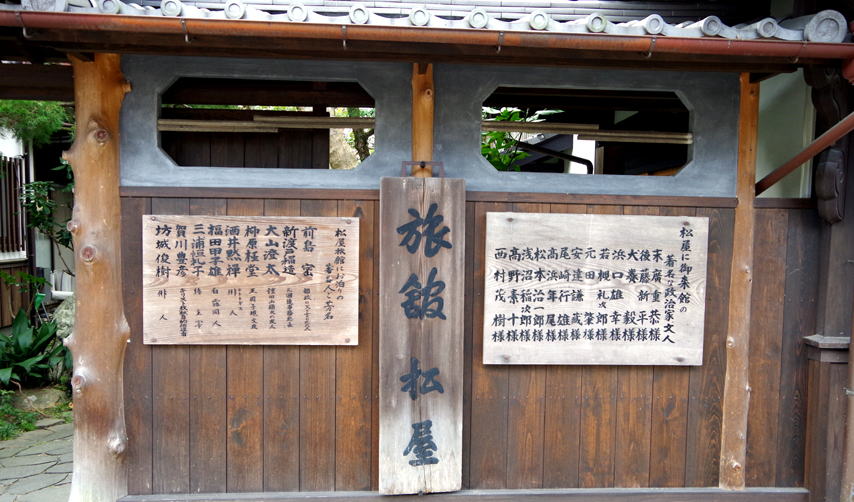 旅館 松屋
松屋に御来館の
著名な政治家文人
末廣重恭様
後藤新平様
犬養毅様
浜口雄幸様
若槻礼次郎様
元田肇様
安達謙蔵様
尾崎行雄様
高浜年尾様
松本治一郎様
浅沼稲次郎様
高野素十様
西村茂樹様
松屋旅館にお泊りの
前島 密
新渡戸稲造
大山澄太
柳原極堂
酒井黙禅
福田甲子雄 白露同人
三浦恒礼子
賀川豊彦
坊城俊樹 俳人